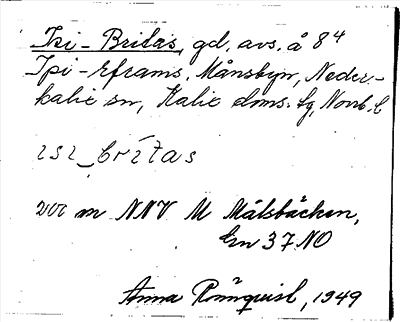 Isi-Britas, gd. avs. å 84
Ipi-Eframs. Månsbyn, Neder-
kalix sn, Kalix doms. lg, Norrb. l
ɪsɪ_brítas
200 m NNV M Målsbäcken,
Gn 37 NO
Anna Rönnquist, 1949